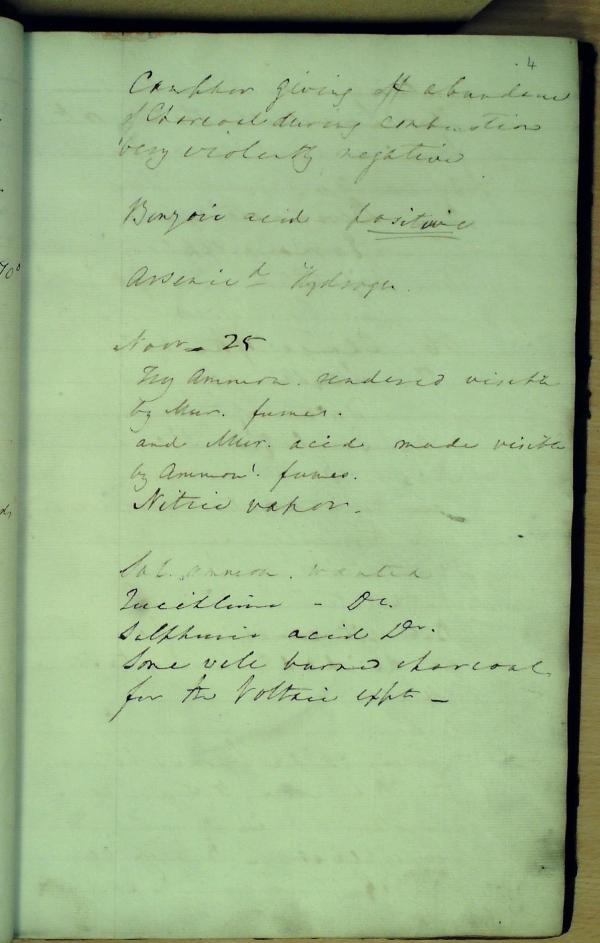 4
Camphor giving off abundance
of Charcoal during combustion
very violently negative
Benzoic acid positive
Arsenicd Hydrogen.
Novr 25
Try Ammon. rendered visible
by Mur. fumes.
and Mur. acid made visible
by Ammonl. fumes.
Nitric vapor.
Sal. ammon. wanted
Quicklime - Do.
Sulphuric acid Do.
Some well burned charcoal
for the Voltaic expts -